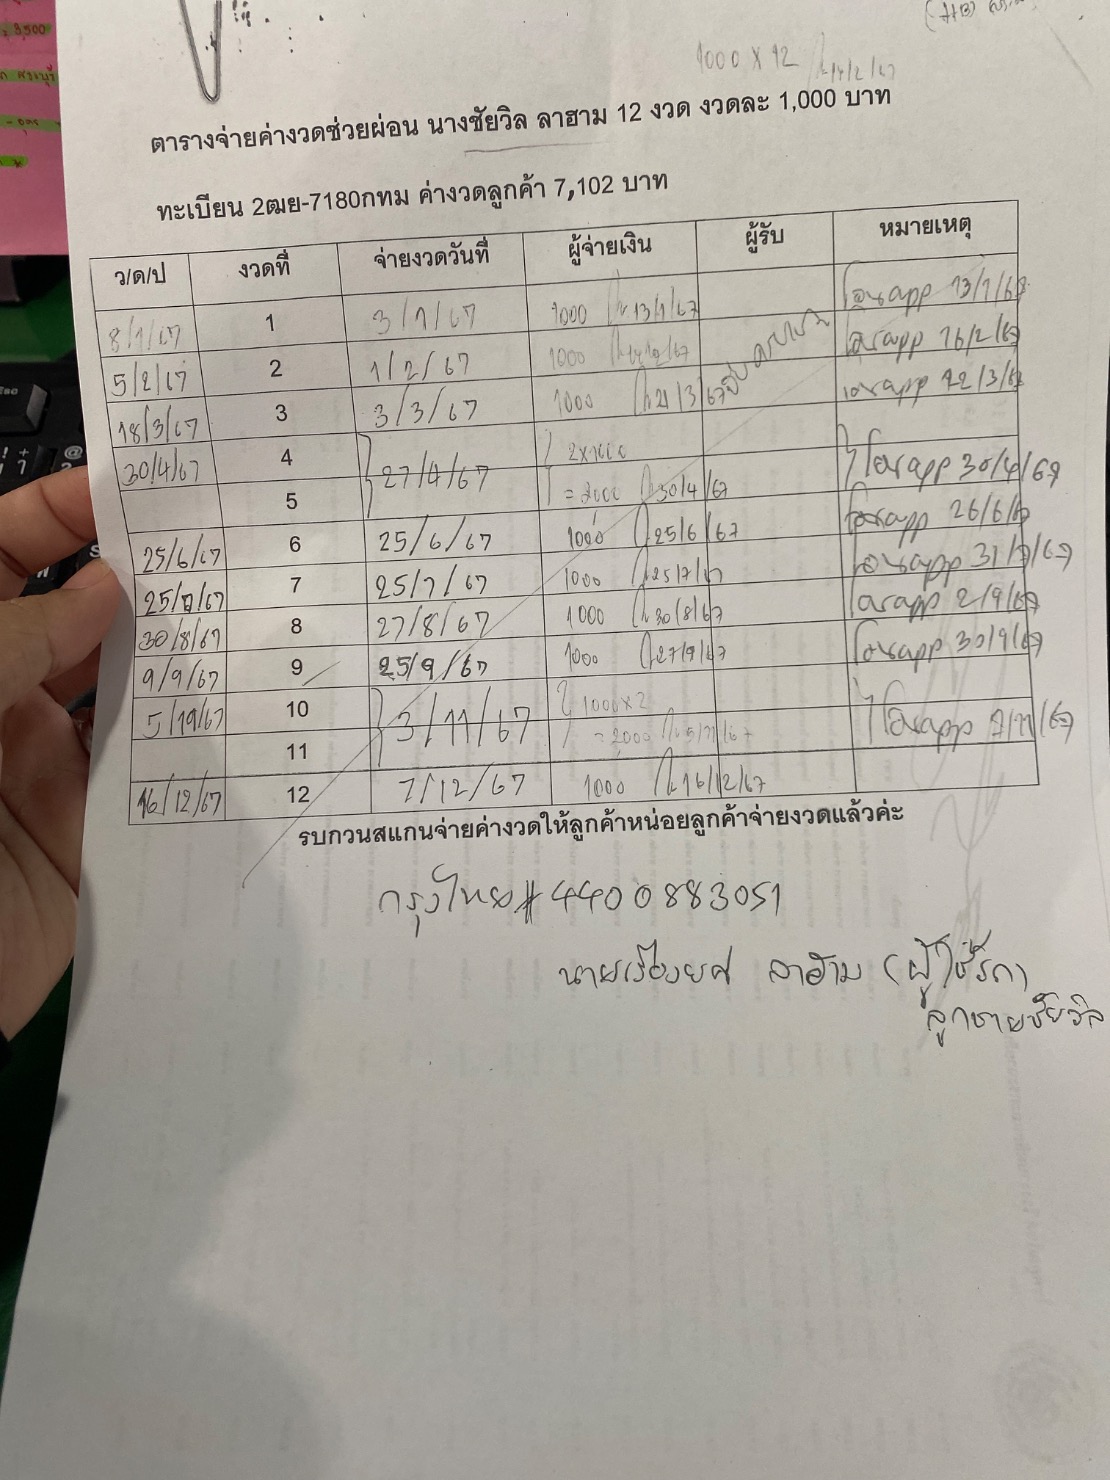 3,500
1000 x 12 14/2/67
ตารางจ่ายค่างวดช่วยผ่อน นางชัยวิล ลาฮาม 12 งวด งวดละ 1,000 บาท
ทะเบียน 2ฒย-7180กทม ค่างวดลูกค้า 7,102 บาท
ว/ด/ป งวดที่ จ่ายงวดวันที่ ผู้จ่ายเงิน ผู้รับ หมายเหตุ
8/1/67 1 3/1/67 1000 13/1/67 โอนapp 13/1/68
5/2/67 2 1/2/67 1000 14/2/67 โอนapp 16/2/67
18/3/67 3 3/3/67 1000 21/3/67 โอนapp 22/3/67
30/4/67 4 27/4/67 2x1000 โอนapp 30/4/67
5 = 2000 30/4/67
25/6/67 6 25/6/67 1000 25/6/67 โอนapp 26/6/67
25/7/67 7 25/7/67 1000 25/7/67 โอนapp 31/7/67
30/8/67 8 27/8/67 1000 30/8/67 โอนapp 2/9/67
9/9/67 9 25/9/67 1000 27/9/67 โอนapp 30/9/67
5/11/67 10 3/11/67 1000x2 โอนapp 7/11/67
11 = 2,000 5/11/67
16/12/67 12 7/12/67 1000 16/12/67
รบกวนสแกนจ่ายค่างวดให้ลูกค้าหน่อยลูกค้าจ่ายงวดแล้วค่ะ
กรุงไทย# 4400883051
นายเรืองยศ ลาฮาม (ผู้ใช้รถ)
ลูกชายชัยวิล